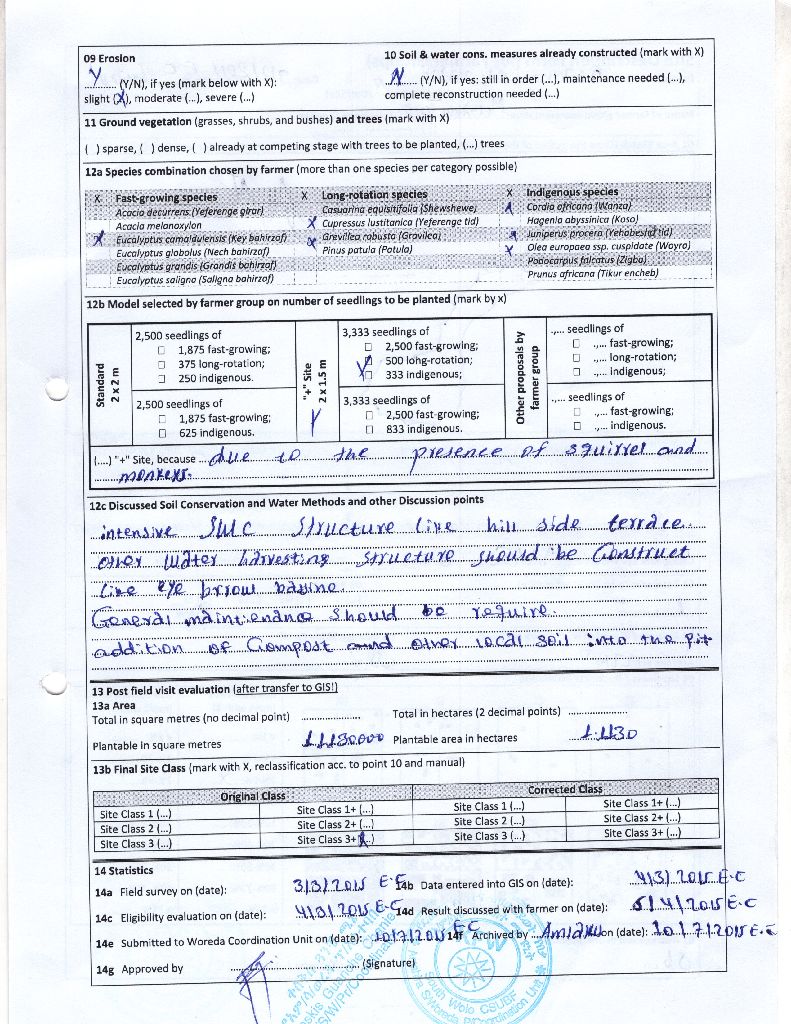 09 Erosion
Y (Y/N), if yes (mark below with X):
slight (X), moderate (...), severe (...)
10 Soil & water cons. measures already constructed (mark with X)
N (Y/N), if yes: still in order (...), maintenance needed (...),
complete reconstruction needed (...)
11 Ground vegetation (grasses, shrubs, and bushes) and trees (mark with X)
( ) sparse, ( ) dense, ( ) already at competing stage with trees to be planted, (...) trees
12a Species combination chosen by farmer (more than one species per category possible)
X Fast-growing species
Acacia decurrens (Yeferenge girar)
Acacia melanoxylon
X Eucalyptus camaldulensis (Key bahirzaf)
Eucalyptus globolus (Nech bahirzaf)
Eucalyptus grandis (Grandis bahirzaf)
Eucalyptus saligna (Saligna bahirzaf)
X Long-rotation species
Casuarina equisitifolia (Shewshewe)
X Cupressus lustitanica (Yeferenge tid)
X Grevillea robusta (Gravilea)
Pinus patula (Patula)
X Indigenous species
X Cordia africana (Wanza)
Hagenia abyssinica (Koso)
X Juniperus procera (Yehabesha tid)
X Olea europaea ssp. cuspidate (Wayra)
Podocarpus falcatus (Zigba)
Prunus africana (Tikur encheb)
12b Model selected by farmer group on number of seedlings to be planted (mark by x)
Standard
2 x 2 m
2,500 seedlings of
☐ 1,875 fast-growing;
☐ 375 long-rotation;
☐ 250 indigenous.
2,500 seedlings of
☐ 1,875 fast-growing;
☐ 625 indigenous.
"+" Site
2 x 1.5 m
3,333 seedlings of
☐ 2,500 fast-growing;
☐ 500 long-rotation;
☐ 333 indigenous;
3,333 seedlings of
☐ 2,500 fast-growing;
☐ 833 indigenous.
Other proposals by
farmer group
.,... seedlings of
☐ .,... fast-growing;
☐ .,... long-rotation;
☐ .,... indigenous;
.,... seedlings of
☐ .,... fast-growing;
☐ .,... indigenous.
(...) "+" Site, because due to the presence of squirrel and
monkeys.
12c Discussed Soil Conservation and Water Methods and other Discussion points
intensive SWC Structure like hill side terrace
other water harvesting structure should be Construct
like eye brow basine.
General maintenance should be require.
addition of Compost and other local soil into the pit
13 Post field visit evaluation (after transfer to GIS!)
13a Area
Total in square metres (no decimal point) ....................
Total in hectares (2 decimal points) ....................
Plantable in square metres
Plantable area in hectares 1.1130
13b Final Site Class (mark with X, reclassification acc. to point 10 and manual)
Original Class
Corrected Class
Site Class 1 (...) Site Class 1+ (...) Site Class 1 (...) Site Class 1+ (...)
Site Class 2 (...) Site Class 2+ (...) Site Class 2 (...) Site Class 2+ (...)
Site Class 3 (...) Site Class 3+ (X) Site Class 3 (...) Site Class 3+ (...)
14 Statistics
14a Field survey on (date): 3/3/2015 E.C
14b Data entered into GIS on (date): 4/3/2015 E.C
14c Eligibility evaluation on (date): 4/3/2015 E.C
14d Result discussed with farmer on (date): 5/4/2015 E.C
14e Submitted to Woreda Coordination Unit on (date): 10/7/2015 E.C
14f Archived by on (date): 10/7/2015 E.C
14g Approved by .................... (Signature)
South Wolo CSUBF